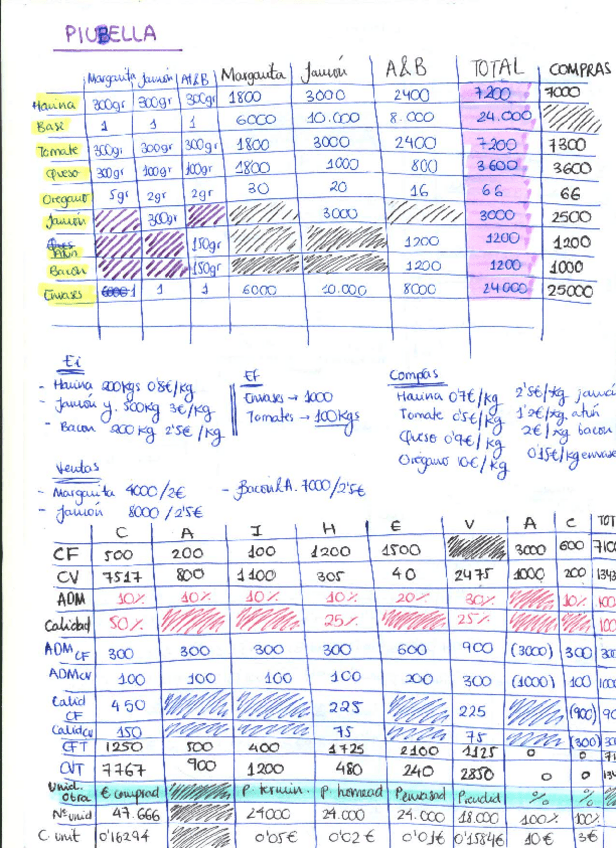 PIUBELLA
Margarita Jamón At&B Margarita Jamón A&B TOTAL COMPRAS
Harina 300gr 300gr 300gr 1800 3000 2400 7200 7000
Base 1 1 1 6000 10.000 8.000 24.000
Tomate 300gr 300gr 300gr 1800 3000 2400 7200 7300
Queso 300gr 100gr 100gr 1800 1000 800 3600 3600
Oregano 5gr 2gr 2gr 30 20 16 66 66
Jamón 300gr 3000 3000 2500
150gr 1200 1200 1200
Bacon 150gr 1200 1200 1000
Envases 1 1 1 6000 10.000 8000 24000 25000
Ei
- Harina 200kgs 0'8€/kg
- Jamón y. 500kg 3€/kg
- Bacon 200kg 2'5€/kg
EF
Envases → 1000
Tomates → 100kgs
Compras
Harina 0'7€/kg 2'5€/kg
Tomate 0'5€/kg 1'2€/kg atún
Queso 0'9€/kg 2€/kg bacon
Orégano 10€/kg 0'15€/kg
Ventas
- Margarita 4000/2€ - Bacon&A. 7000/2'5€
- Jamón 8000/2'5€
C A I H E V A C
CF 500 200 100 1200 1500 3000 600
CV 7517 800 1100 305 40 2475 1000 200
ADM 10% 10% 10% 10% 20% 30% 10%
Calidad 50% 25% 25%
ADM CF 300 300 300 300 600 900 (3000) 300
ADM CV 100 100 100 100 200 300 (1000) 100
Calid CF 450 225 225 (900)
Calid CV 150 75 75 (300)
CFT 1250 500 400 1725 2100 1125 0 0
CVT 7767 900 1200 480 240 2850 0 0
Unid. obra € comprad P. termin P. hornead P. envasad P. vendid % %
Nº unid 47.666 24000 24.000 24.000 18.000 100% 100%
C. unit 0'16294 0'05€ 0'02€ 0'01€ 0'1584€ 10€ 3€